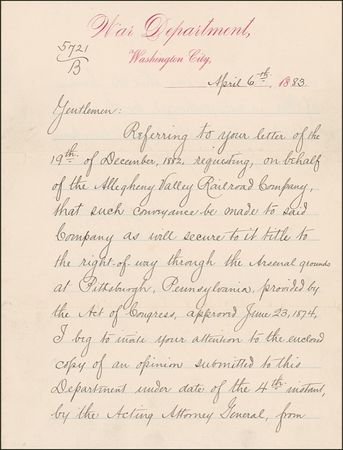 War Department,
Washington City,
5721
B
April 6th, 1883.
Gentlemen:
Referring to your letter of the
19th of December, 1882, requesting, on behalf
of the Allegheny Valley Railroad Company,
that such conveyance be made to said
Company as will secure to it title to
the right-of-way through the Arsenal grounds
at Pittsburgh, Pennsylvania, provided by
the Act of Congress, approved June 23, 1874,
I beg to invite your attention to the enclosed
copy of an opinion submitted to this
Department under date of the 4th instant,
by the Acting Attorney General, from